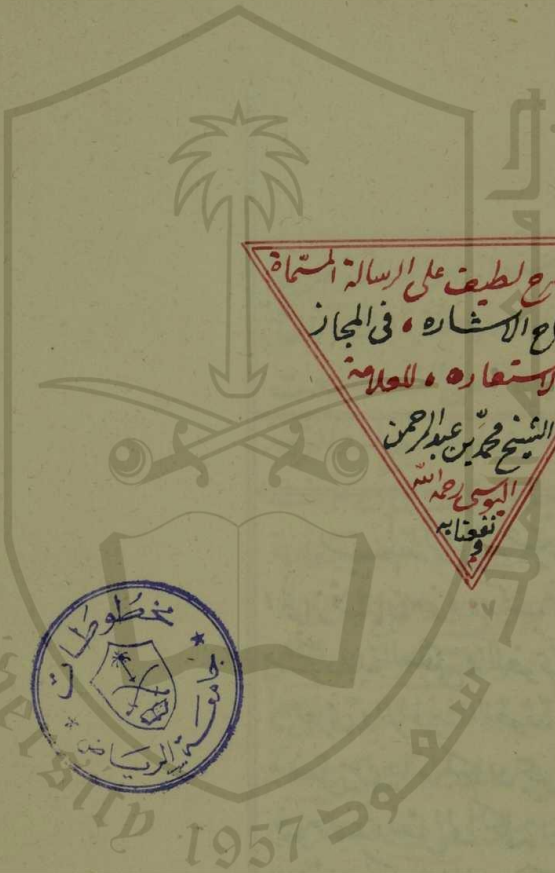 رح لطيف على الرسالة المسماة
اح الاشاره، فى المجاز
لاستعاره، للعلامة
الشيخ محمد بن عبد الرحمن
رحمه الله
نفعنا به
مخطوطات
جامعة الرياض
1957